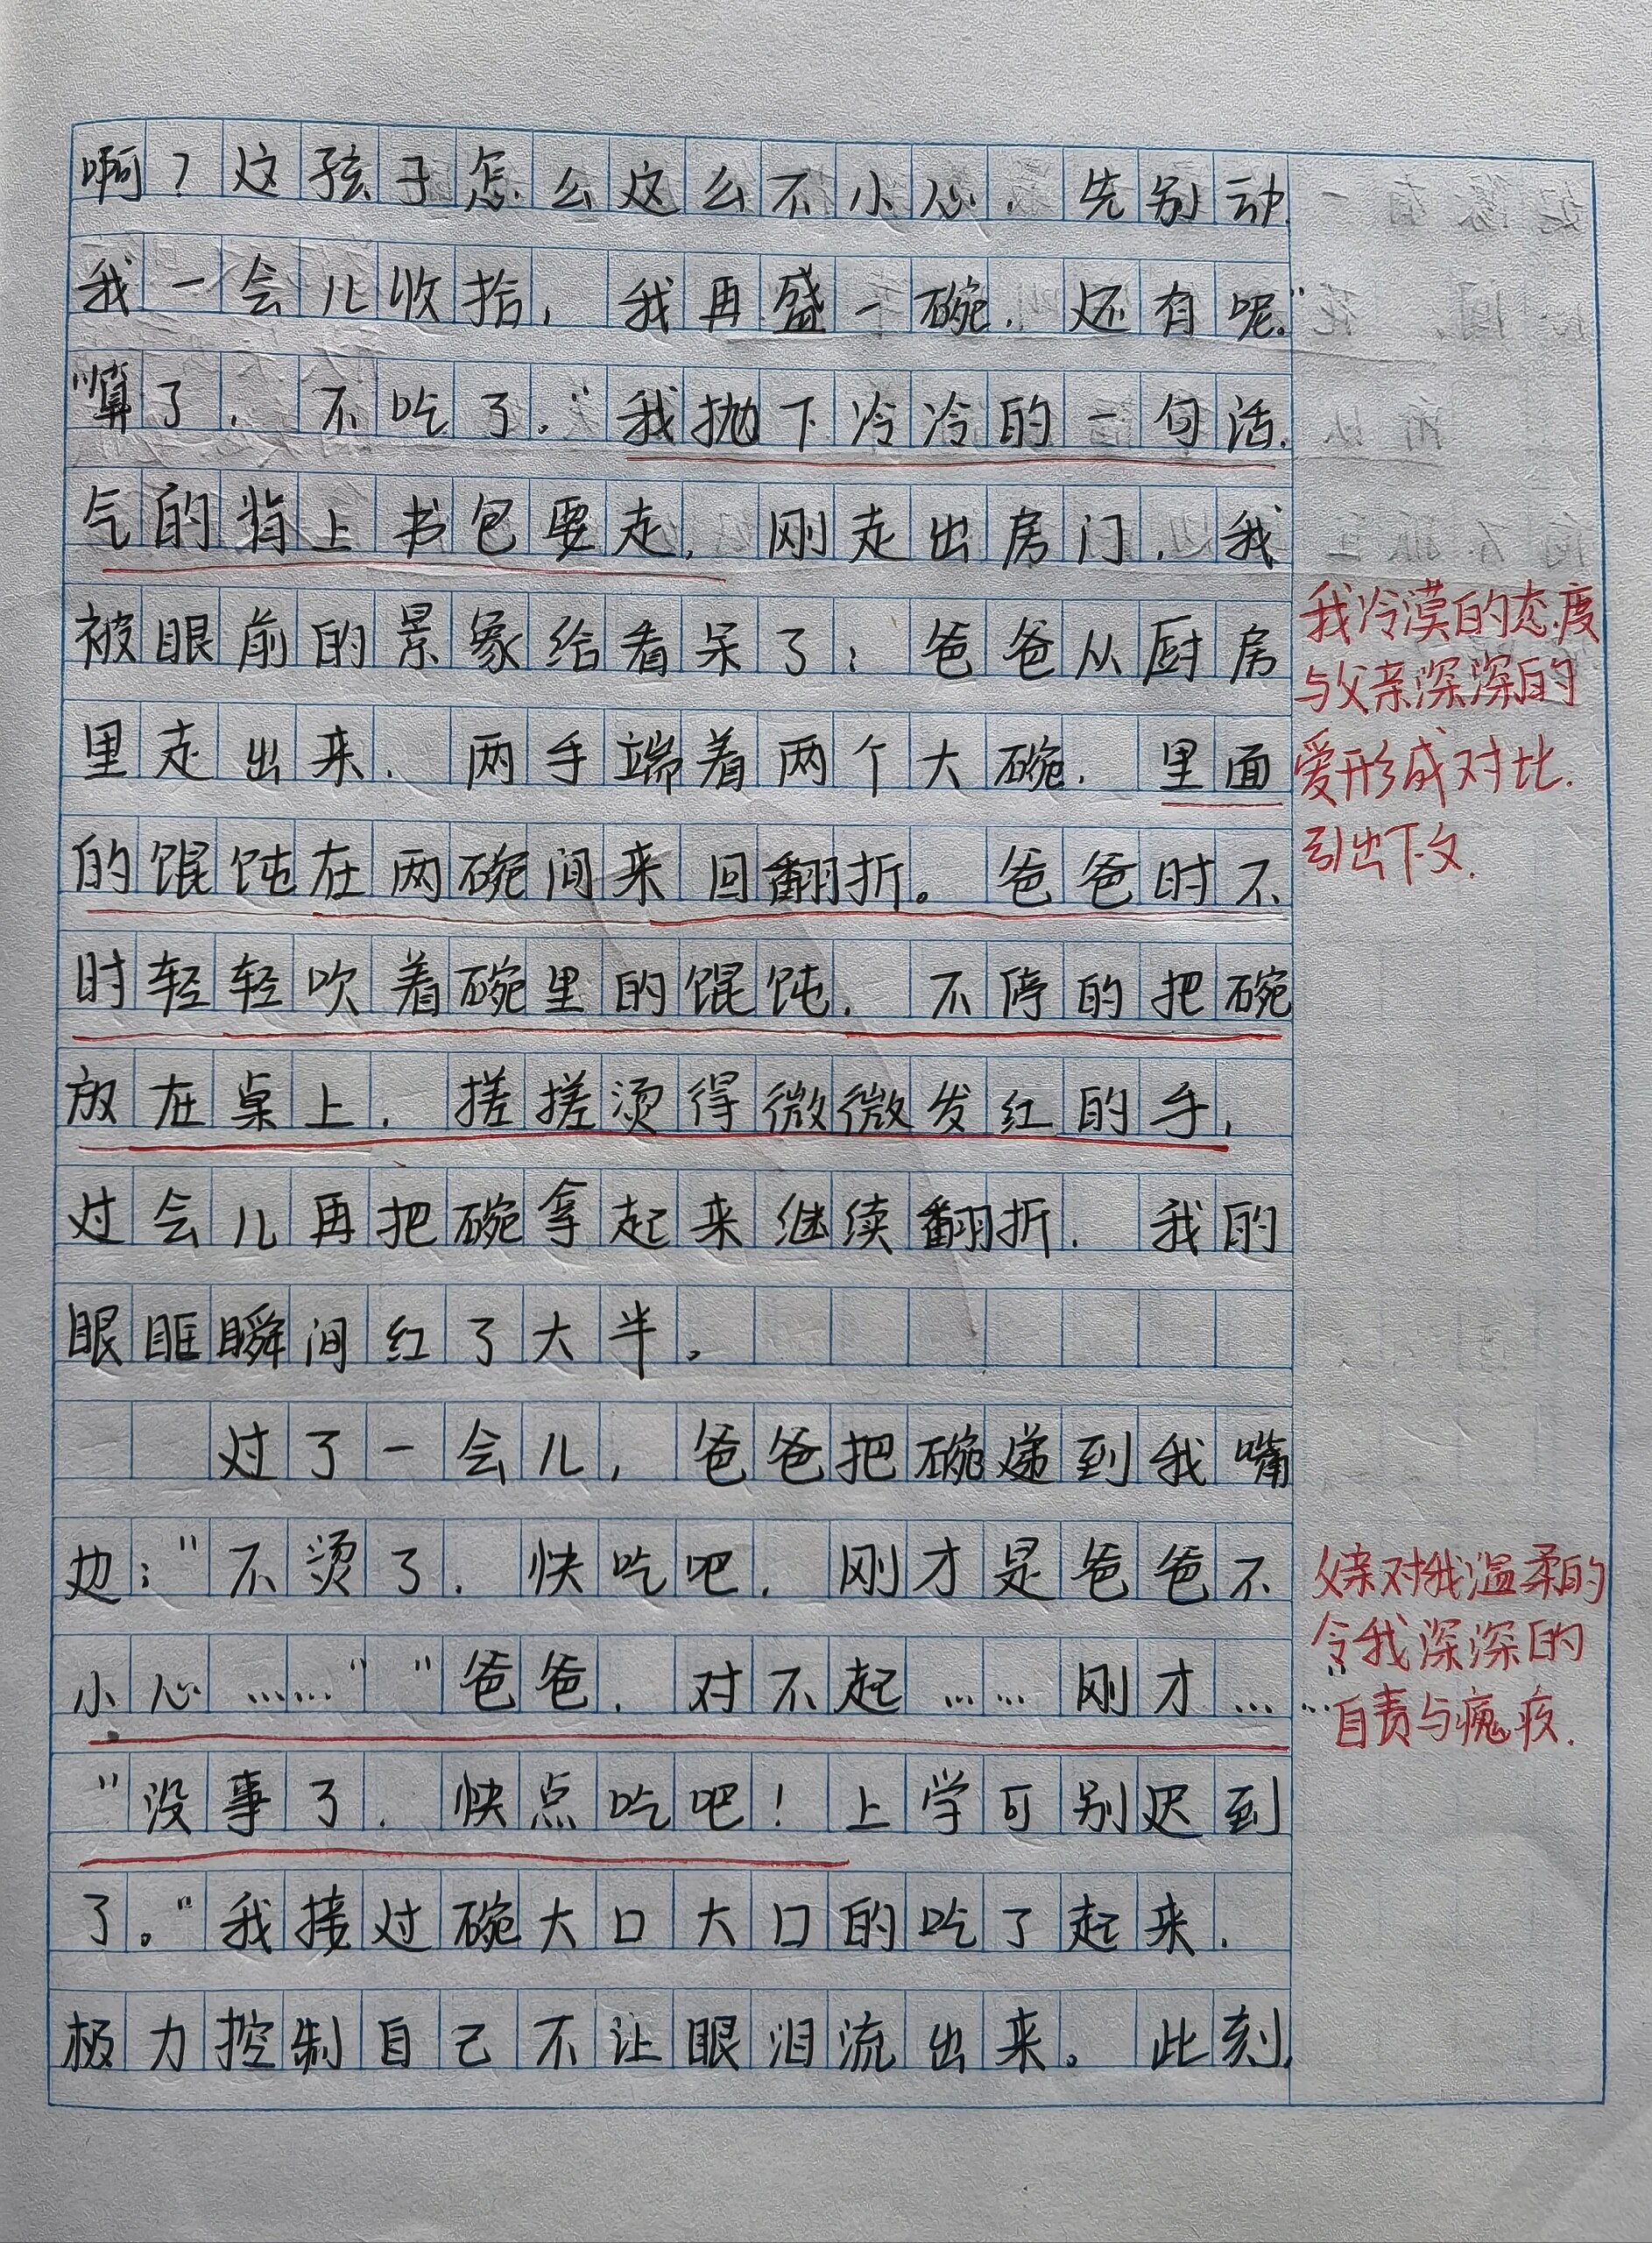 啊？这孩子怎么这么不小心，先别动
我一会儿收拾，我再盛一碗，还有呢。”
“算了，不吃了。”我抛下冷冷的一句话，
气的背上书包要走，刚走出房门，我
被眼前的景象给看呆了：爸爸从厨房
里走出来，两手端着两个大碗，里面
的馄饨在两碗间来回翻折。爸爸时不
时轻轻吹着碗里的馄饨，不停的把碗
放在桌上，搓搓烫得微微发红的手，
过会儿再把碗拿起来继续翻折，我的
眼眶瞬间红了大半。
过了一会儿，爸爸把碗递到我嘴
边：“不烫了，快吃吧，刚才是爸爸不
小心……”“爸爸，对不起……刚才……”
“没事了，快点吃吧！上学可别迟到
了。”我接过碗大口大口的吃了起来，
极力控制自己不让眼泪流出来。此刻，
我冷漠的态度
与父亲深深的
爱形成对比，
引出下文.
父亲对我温柔的
令我深深的
自责与愧疚.